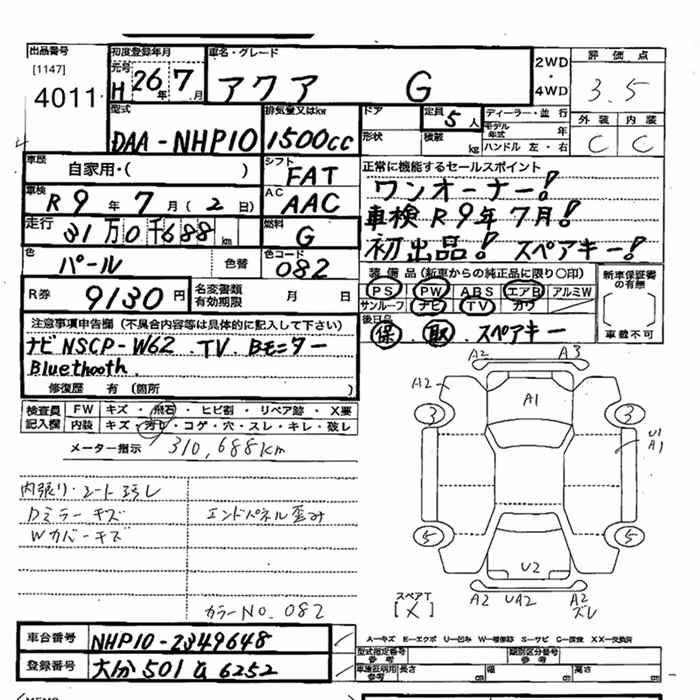 出品番号 初度登録年月 車名・グレード 評価点
[1147] 元号 2WD
4011 H 26年 7月 アクア G ・ 4WD 3.5
型式 排気量又はkw ドア 定員 5人 ディーラー・並行 外装 内装
DAA-NHP10 1500cc 形状 積載 kg モデル年式 年 C C
ハンドル 左・右
車歴 自家用・( ) シフト FAT 正常に機能するセールスポイント
車検 R 9年 7月(2日) AC AAC ワンオーナー!
走行 31万0千688km 燃料 G 車検R9年7月!
色 パール 色替 色コード 082 初出品! スペアキー!
R券 9130円 名変書類有効期限 月 日 装備品(新車からの純正品に限り○印) 新車保証書の有無
PS PW ABS エアB アルミW
サンルーフ ナビ TV カワ
後日品 車載不可
保 取 スペアキー
注意事項申告欄(不具合内容等は具体的に記入して下さい)
ナビNSCP-W62.TV.Bモニター
Bluethooth.
修復歴 有(箇所 )
検査員 FW キズ・飛石・ヒビ割・リペア跡・X要
記入欄 内装 キズ・汚レ・コゲ・穴・スレ・キレ・破レ
メーター指示 310,688km
A2 A3
A2 A1
3 3
U1
A1
内張り・シート汚レ
Dミラーキズ エンドパネル歪み
Wカバーキズ
5 5
U2
スペアT
[X] A2 UA2 A2
ズレ
カラーNO.082
車台番号 NHP10-2349648 A―キズ E―エクボ U―凹み W―補修跡 S―サビ C―腐食 XX―交換済
型式指定番号 参考 類別区分番号 参考
登録番号 大分 501 な 6252 車検証明用参考 長さ cm 幅 cm 高さ cm